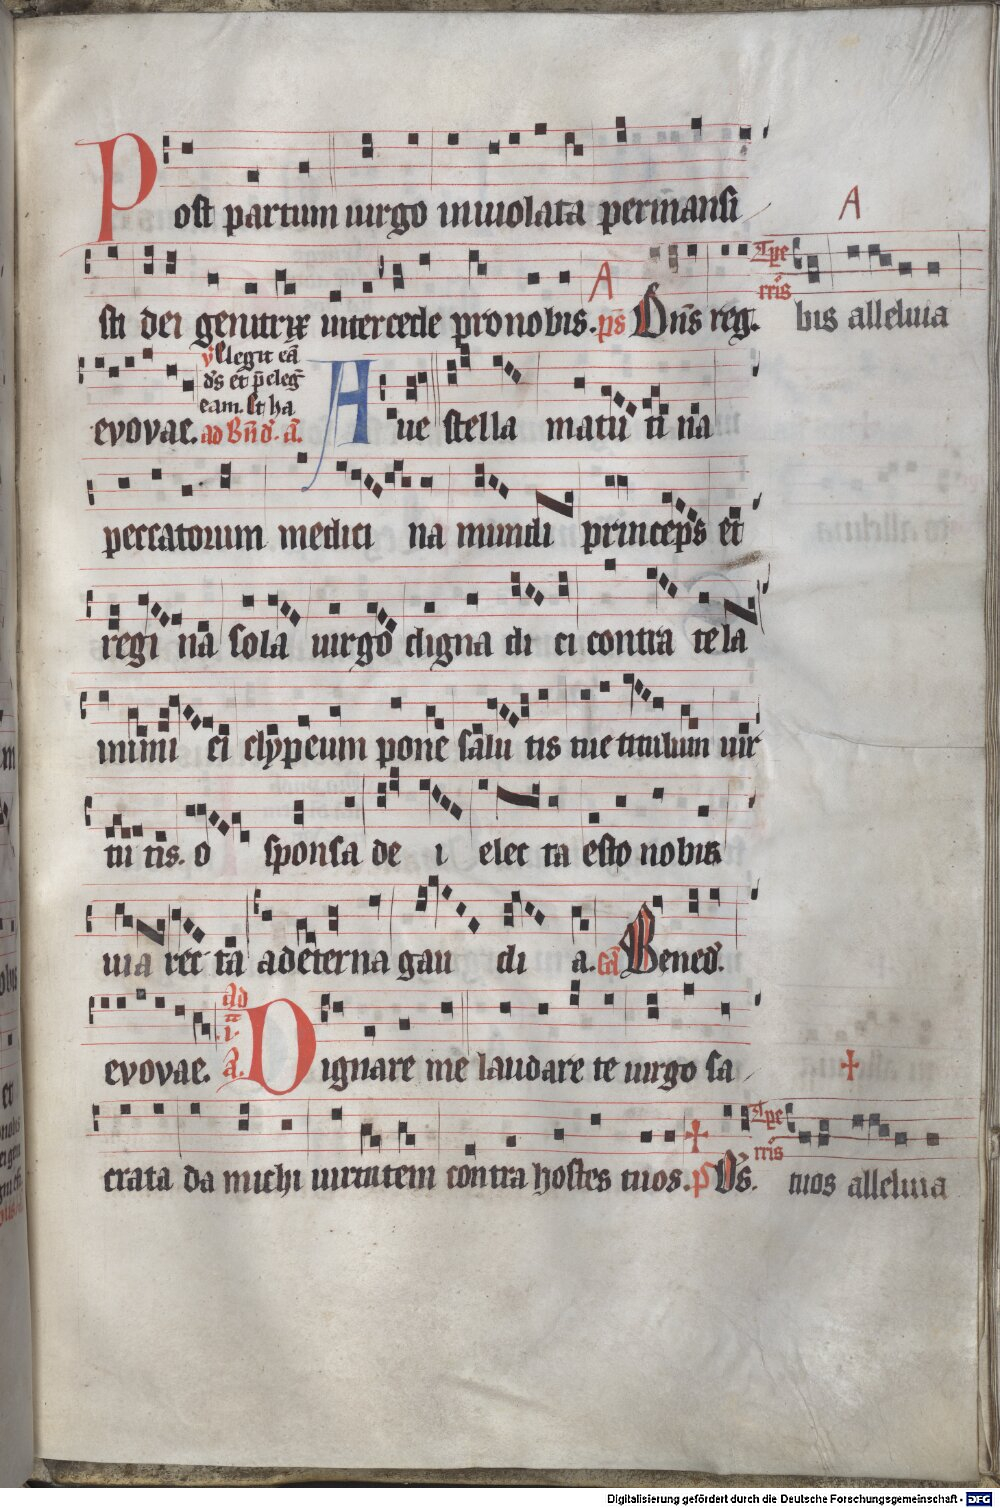 Post partum uirgo inuiolata permansi
A
sti dei genitrix intercede pro nobis. ps̄ A Dn̄s reg.
T̄pe
rr̄is
bis alleluia
evovae. v̄ Elegit eā
ds̄ et p̄eleḡ
eam. Et ha
ad Bn̄d. a.
Aue stella matuti na
peccatorum medici na mundi princeps et
regi na sola uirgo digna di ci contra tela
inimi ci clypeum pone salu tis tue titulum uir
tu tis. o sponsa de i elec ta esto nobis
uia rec ta ad eterna gau di a. cā Bened.
evovae. ad
.i.
a. Dignare me laudare te uirgo sa
crata da michi uirtutem contra hostes tuos. p Ds̄.
T̄pe
rr̄is
tuos alleluia
Digitalisierung gefördert durch die Deutsche Forschungsgemeinschaft - DFG